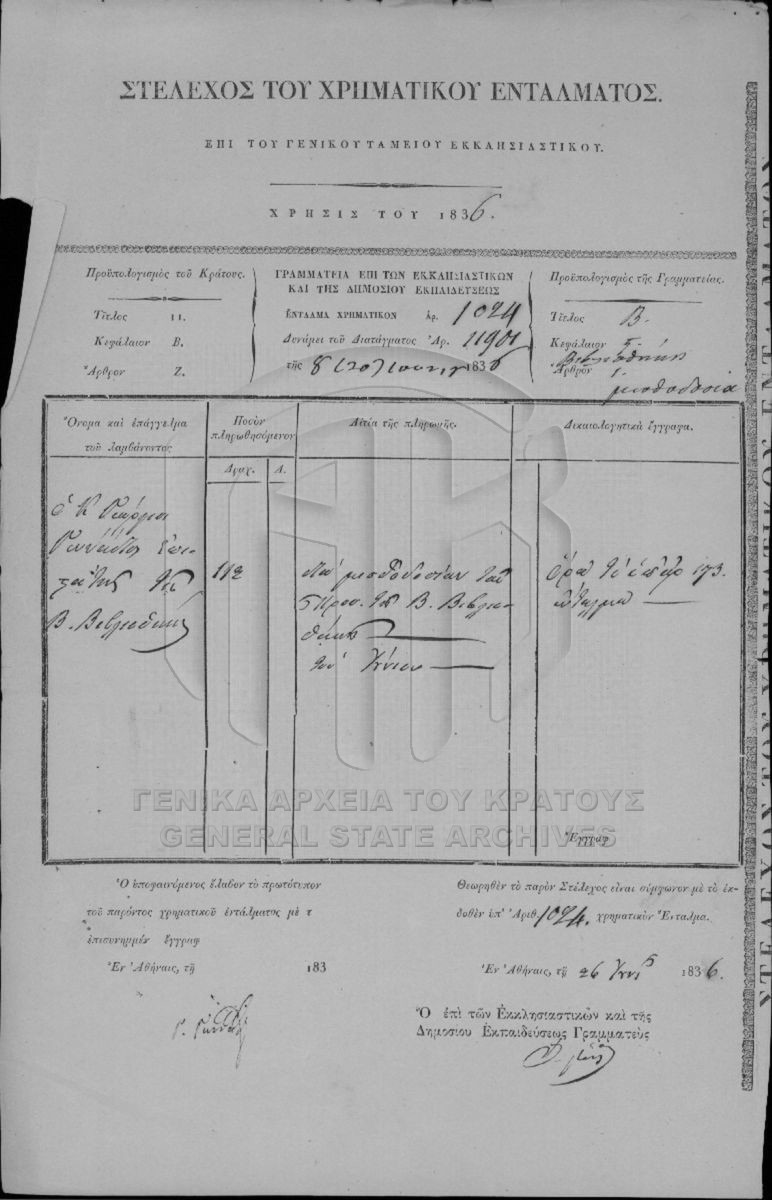 ΣΤΕΛΕΧΟΣ ΤΟΥ ΧΡΗΜΑΤΙΚΟΥ ΕΝΤΑΛΜΑΤΟΣ.
ΕΠΙ ΤΟΥ ΓΕΝΙΚΟΥ ΤΑΜΕΙΟΥ ΕΚΚΛΗΣΙΑΣΤΙΚΟΥ.
ΧΡΗΣΙΣ ΤΟΥ 1836.
Προϋπολογισμὸς τοῦ Κράτους.
Τίτλος ΙΙ.
Κεφάλαιον Β.
Ἄρθρον Ζ.
ΓΡΑΜΜΑΤΕΙΑ ΕΠΙ ΤΩΝ ΕΚΚΛΗΣΙΑΣΤΙΚΩΝ
ΚΑΙ ΤΗΣ ΔΗΜΟΣΙΟΥ ΕΚΠΑΙΔΕΥΣΕΩΣ
ΕΝΤΑΛΜΑ ΧΡΗΜΑΤΙΚΟΝ Ἀρ. 1024
Δυνάμει τοῦ Διατάγματος Ἀρ. 11901
τῆς 8 (20) Ἰουνίου 1836
Προϋπολογισμὸς τῆς Γραμματείας.
Τίτλος Β.
Κεφάλαιον
Βιβλιοθήκης
Ἄρθρον
μισθοδοσία
Ὄνομα καὶ ἐπάγγελμα
τοῦ λαμβάνοντος
Ποσὸν
πληρωθησόμενον
Δραχ. Λ.
Αἰτία τῆς πληρωμῆς.
Δικαιολογητικὰ ἔγγραφα.
ὁ Κ Γεώργιος
Γεννάδιος
τῆς
Β. Βιβλιοθήκης
112
διὰ μισθοδοσίαν τοῦ
τῆς Β. Βιβλιο-
θήκης
τοῦ Ἰουνίου
ὅρα τὸ ὑπ' ἀρ 173.
ἔνταλμα
Ἔγγραφ
ΓΕΝΙΚΑ ΑΡΧΕΙΑ ΤΟΥ ΚΡΑΤΟΥΣ
GENERAL STATE ARCHIVES
Ὁ ὑποφαινόμενος ἔλαβον τὸ πρωτότυπον
τοῦ παρόντος χρηματικοῦ ἐντάλματος μὲ τ
ἐπισυνημμέν ἔγγραφ
Ἐν Ἀθήναις, τῇ 183
Θεωρηθὲν τὸ παρὸν Στέλεχος εἶναι σύμφωνον μὲ τὸ ἐκ-
δοθὲν ὑπ' Ἀριθ. 1024. χρηματικὸν Ἔνταλμα.
Ἐν Ἀθήναις, τῇ 26 Ἰουνίου 1836.
Ὁ ἐπὶ τῶν Ἐκκλησιαστικῶν καὶ τῆς
Δημοσίου Ἐκπαιδεύσεως Γραμματεὺς